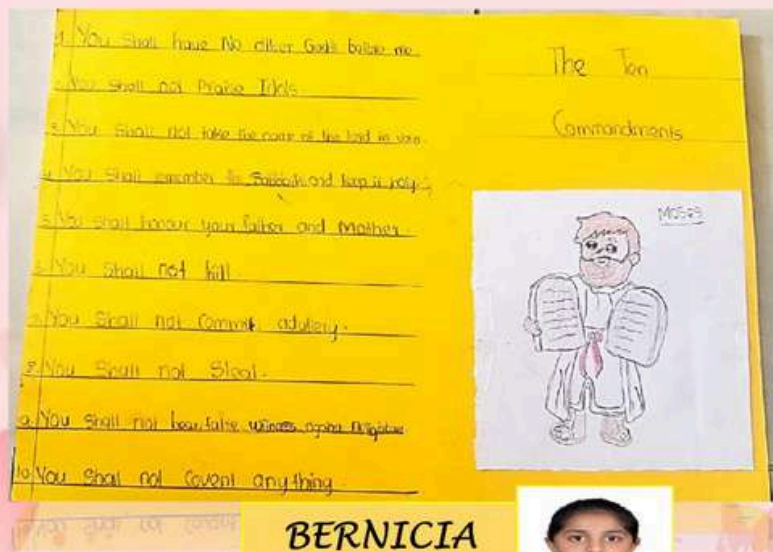 1. You Shall have No other Gods before me.
2. You Shall not Praise Idols
3. You Shall not take the name of the lord in vain.
4. You Shall remember the Sabbath and keep it holy.
5. You Shall honour your father and Mother.
6. You Shall not kill.
7. You Shall not Commit adultery.
8. You Shall not Steal.
9. You Shall not bear false witness
10. You Shall not Covent anything.
The Ten
Commandments
MOSES
BERNICIA